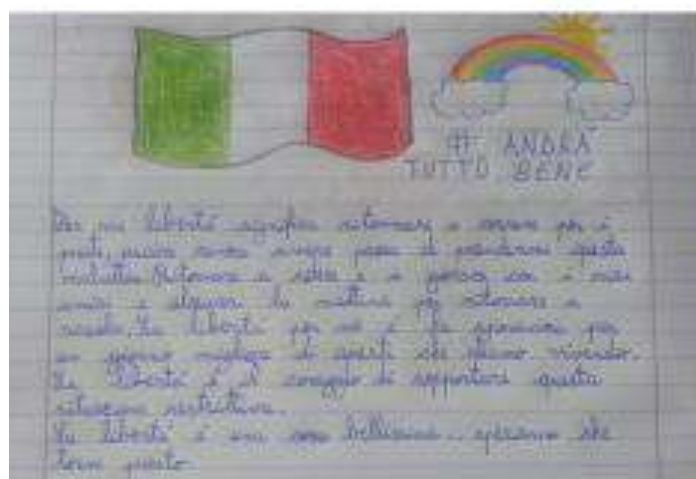 # ANDRÀ
TUTTO BENE
Per me libertà significa ritornare a correre per i
prati, senza avere paura di prendermi questa
malattia. Ritornare a e a con i miei
amici e la mattina per ritornare a
scuola. La libertà per me è la speranza per
un giorno migliore di questi che stiamo vivendo.
La libertà è il coraggio di sopportare questa
situazione restrittiva.
La libertà è una cosa bellissima.. speriamo che
torni presto